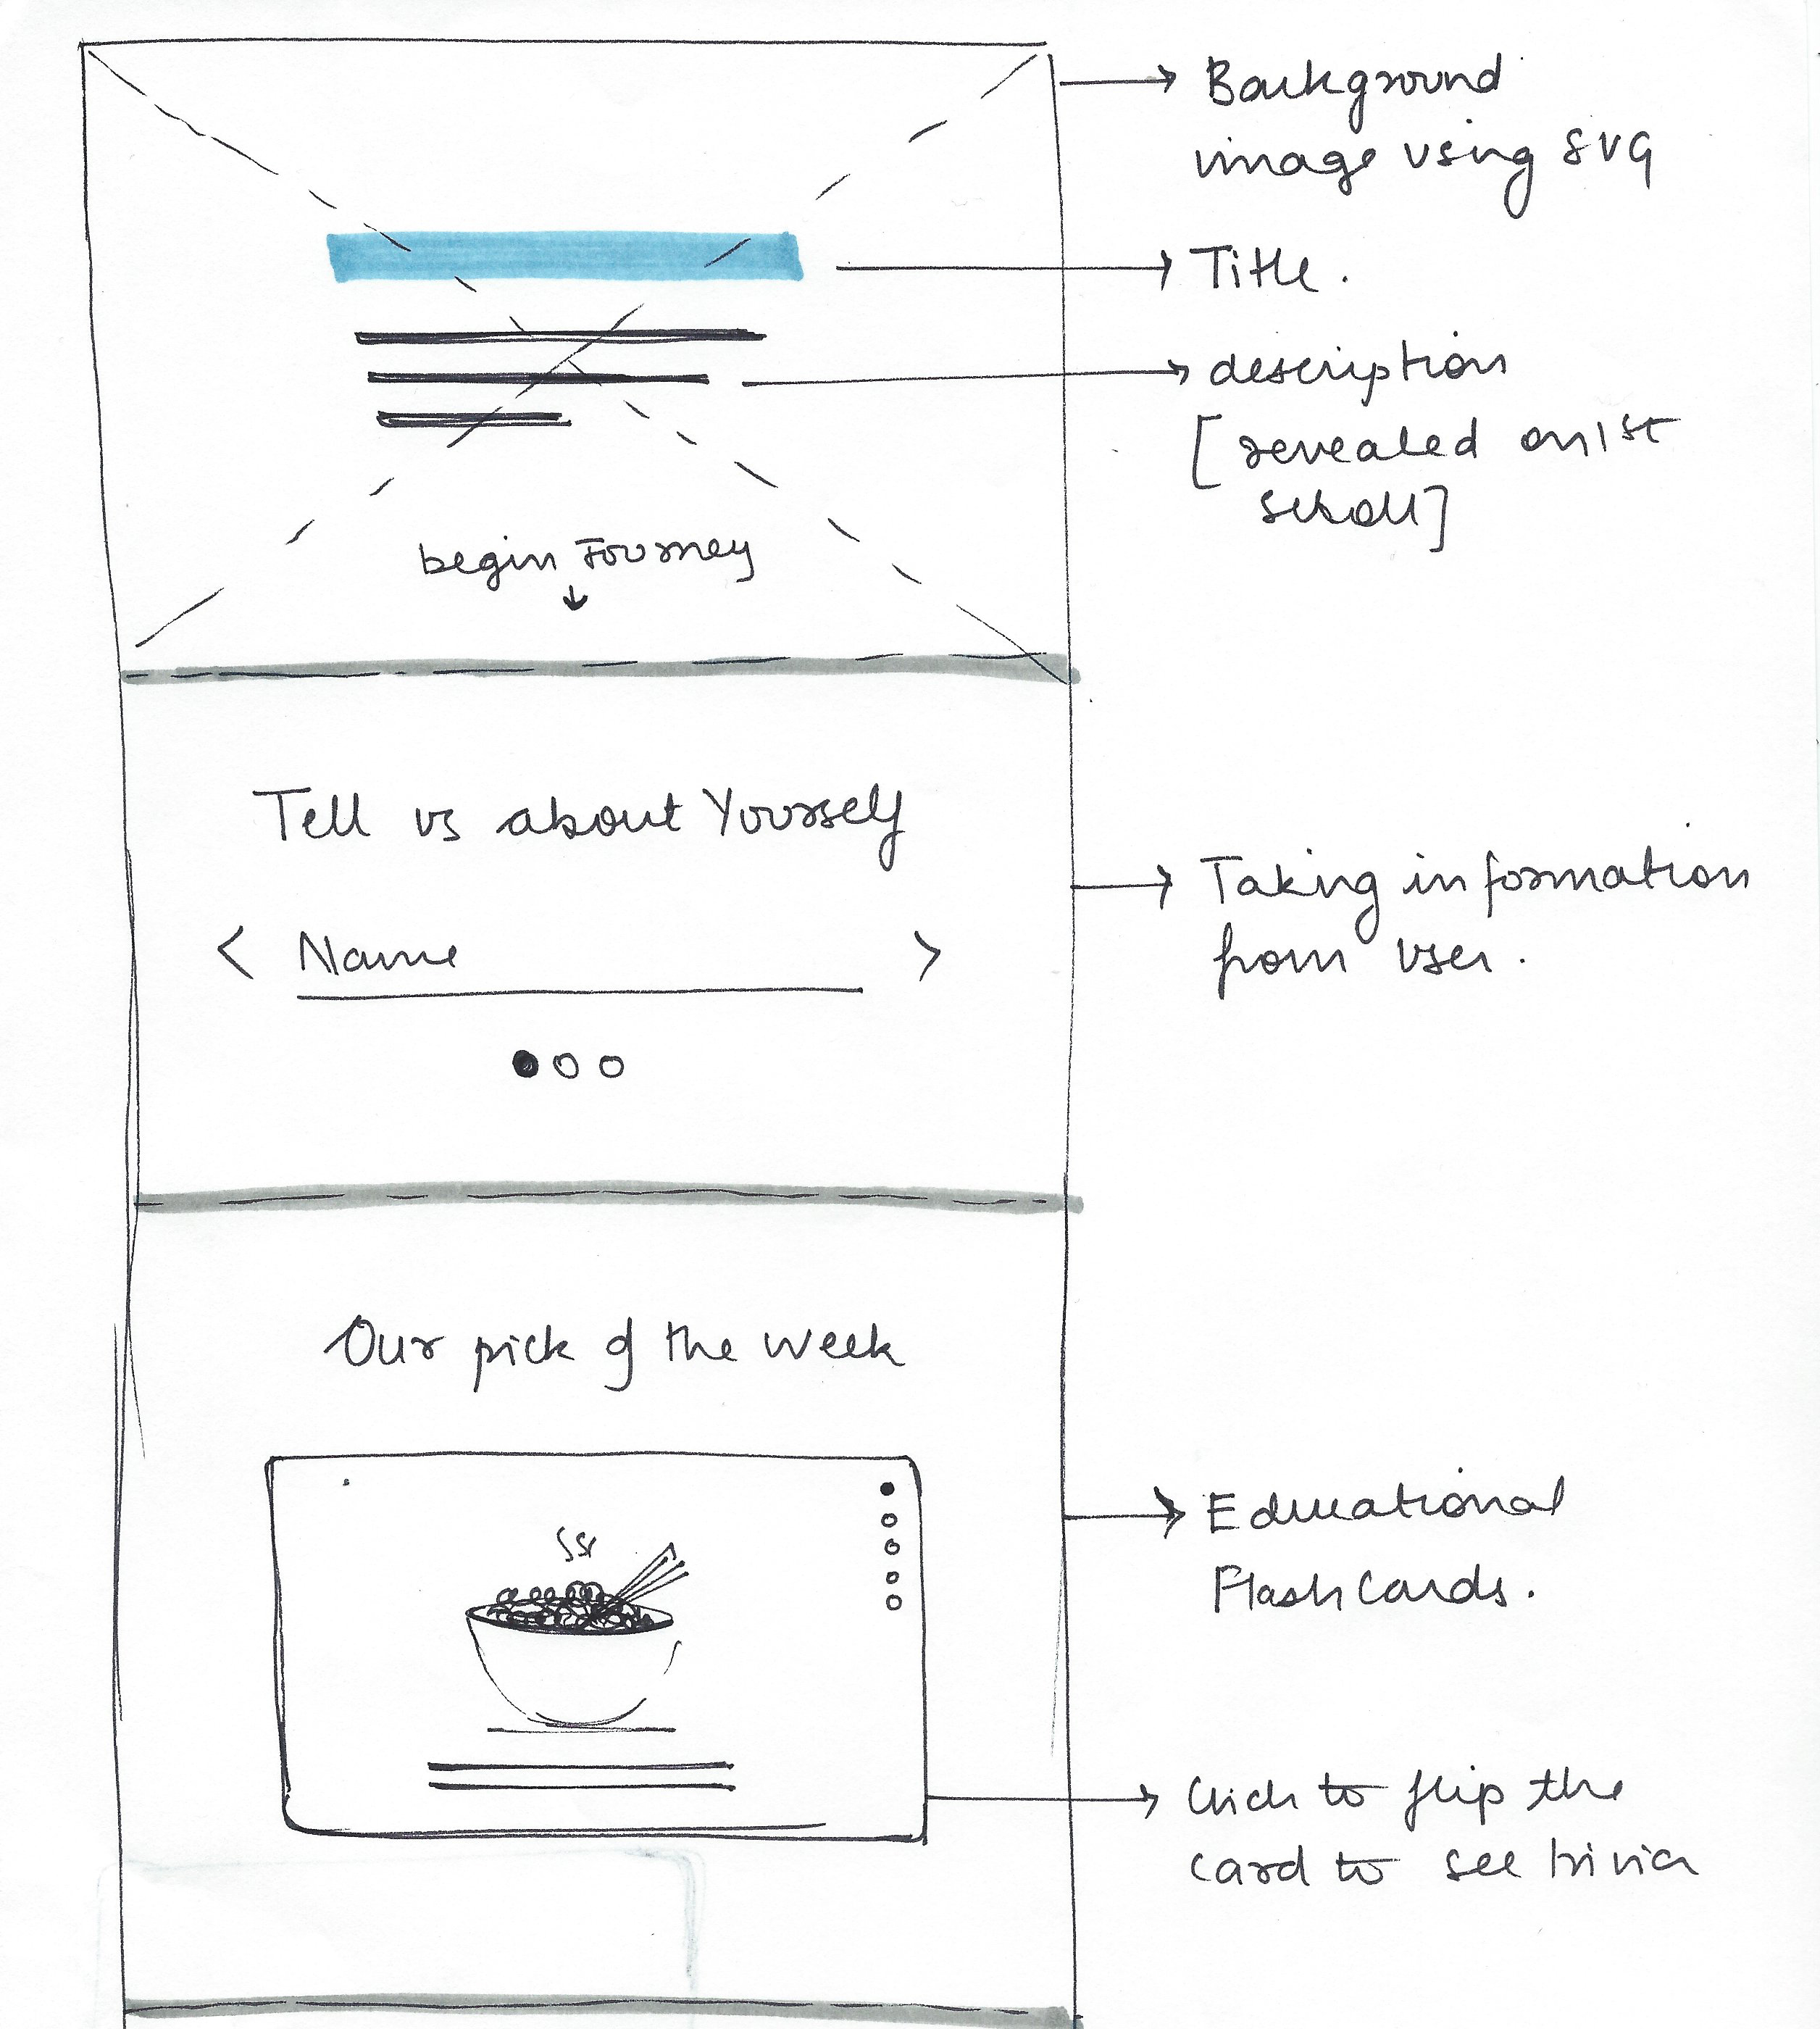 Background
image using SVG
Title.
description
[revealed on 1st
scroll]
begin Journey
Tell us about Yourself
< Name >
Taking information
from user.
Our pick of the week
Educational
Flash Cards.
Click to flip the
card to see trivia